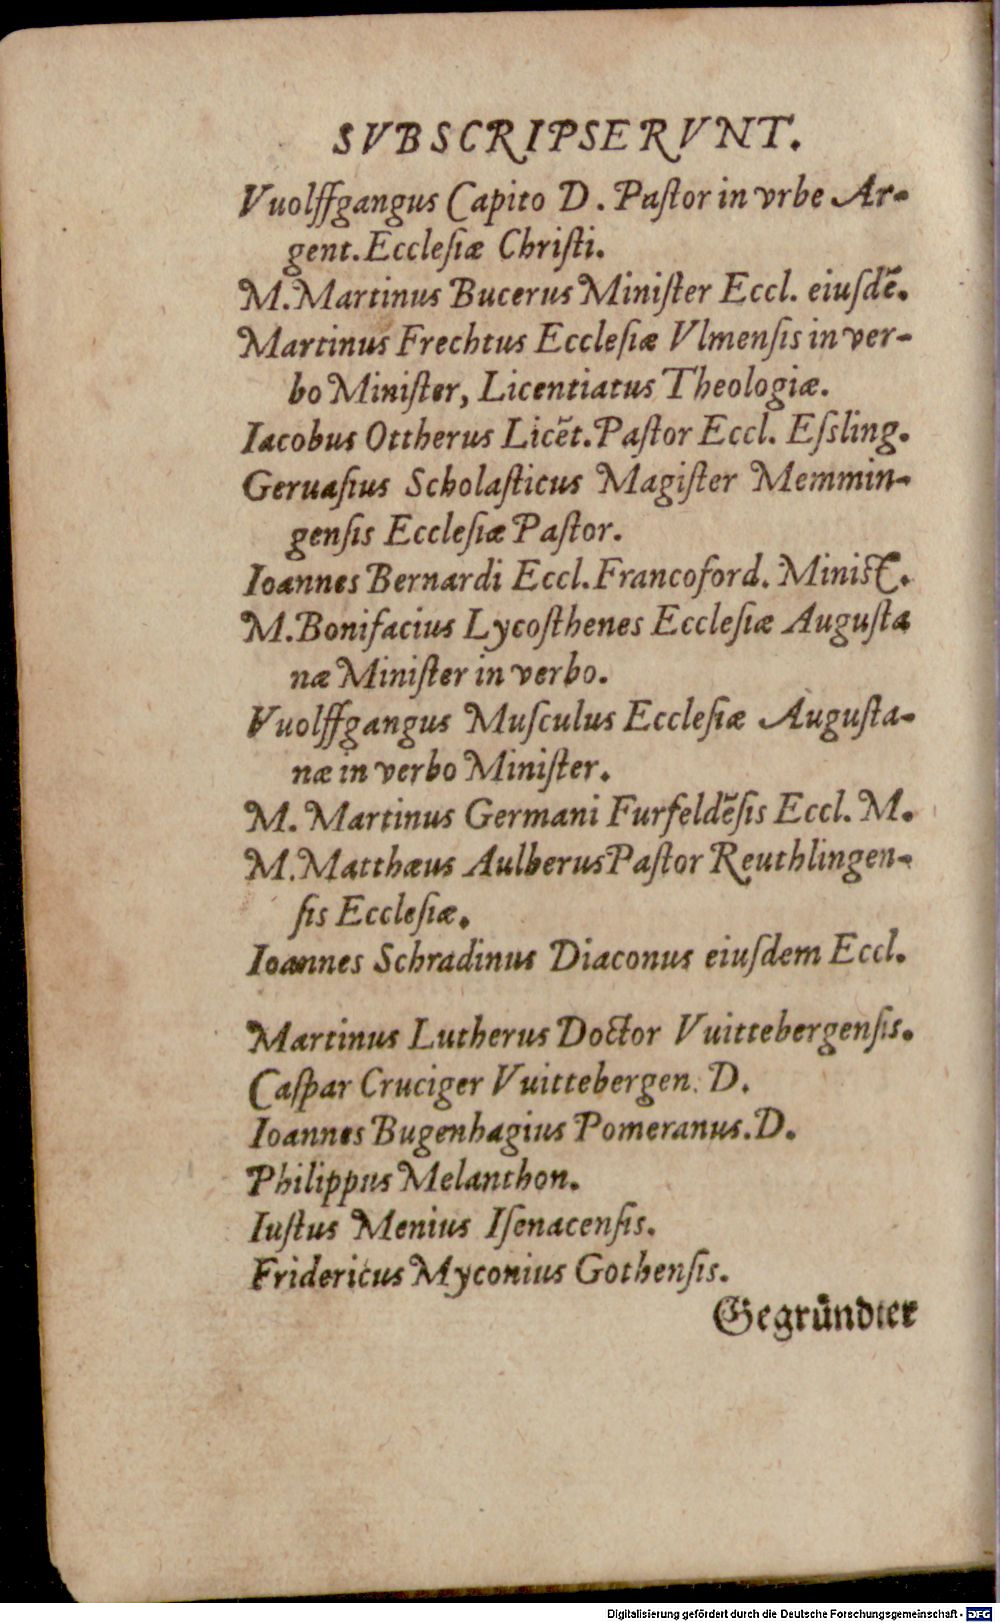 SVBSCRIPSERVNT.
Vuolffgangus Capito D. Paſtor in vrbe Ar-
gent. Eccleſiæ Chriſti.
M. Martinus Bucerus Miniſter Eccl. eiuſdē.
Martinus Frechtus Eccleſiæ Vlmenſis in ver-
bo Miniſter, Licentiatus Theologiæ.
Iacobus Ottherus Licēt. Paſtor Eccl. Eſsling.
Geruaſius Scholaſticus Magiſter Memmin-
genſis Eccleſiæ Paſtor.
Ioannes Bernardi Eccl. Francoford. Miniſt.
M. Bonifacius Lycoſthenes Eccleſiæ Auguſta
næ Miniſter in verbo.
Vuolffgangus Muſculus Eccleſiæ Auguſta-
næ in verbo Miniſter.
M. Martinus Germani Furfeldēſis Eccl. M.
M. Matthæus Aulberus Paſtor Reuthlingen-
ſis Eccleſiæ.
Ioannes Schradinus Diaconus eiuſdem Eccl.
Martinus Lutherus Doctor Vuittebergenſis.
Caſpar Cruciger Vuittebergen. D.
Ioannes Bugenhagius Pomeranus. D.
Philippus Melanthon.
Iuſtus Menius Iſenacenſis.
Fridericus Myconius Gothenſis.
Gegründter
Digitalisierung gefördert durch die Deutsche Forschungsgemeinschaft - DFG